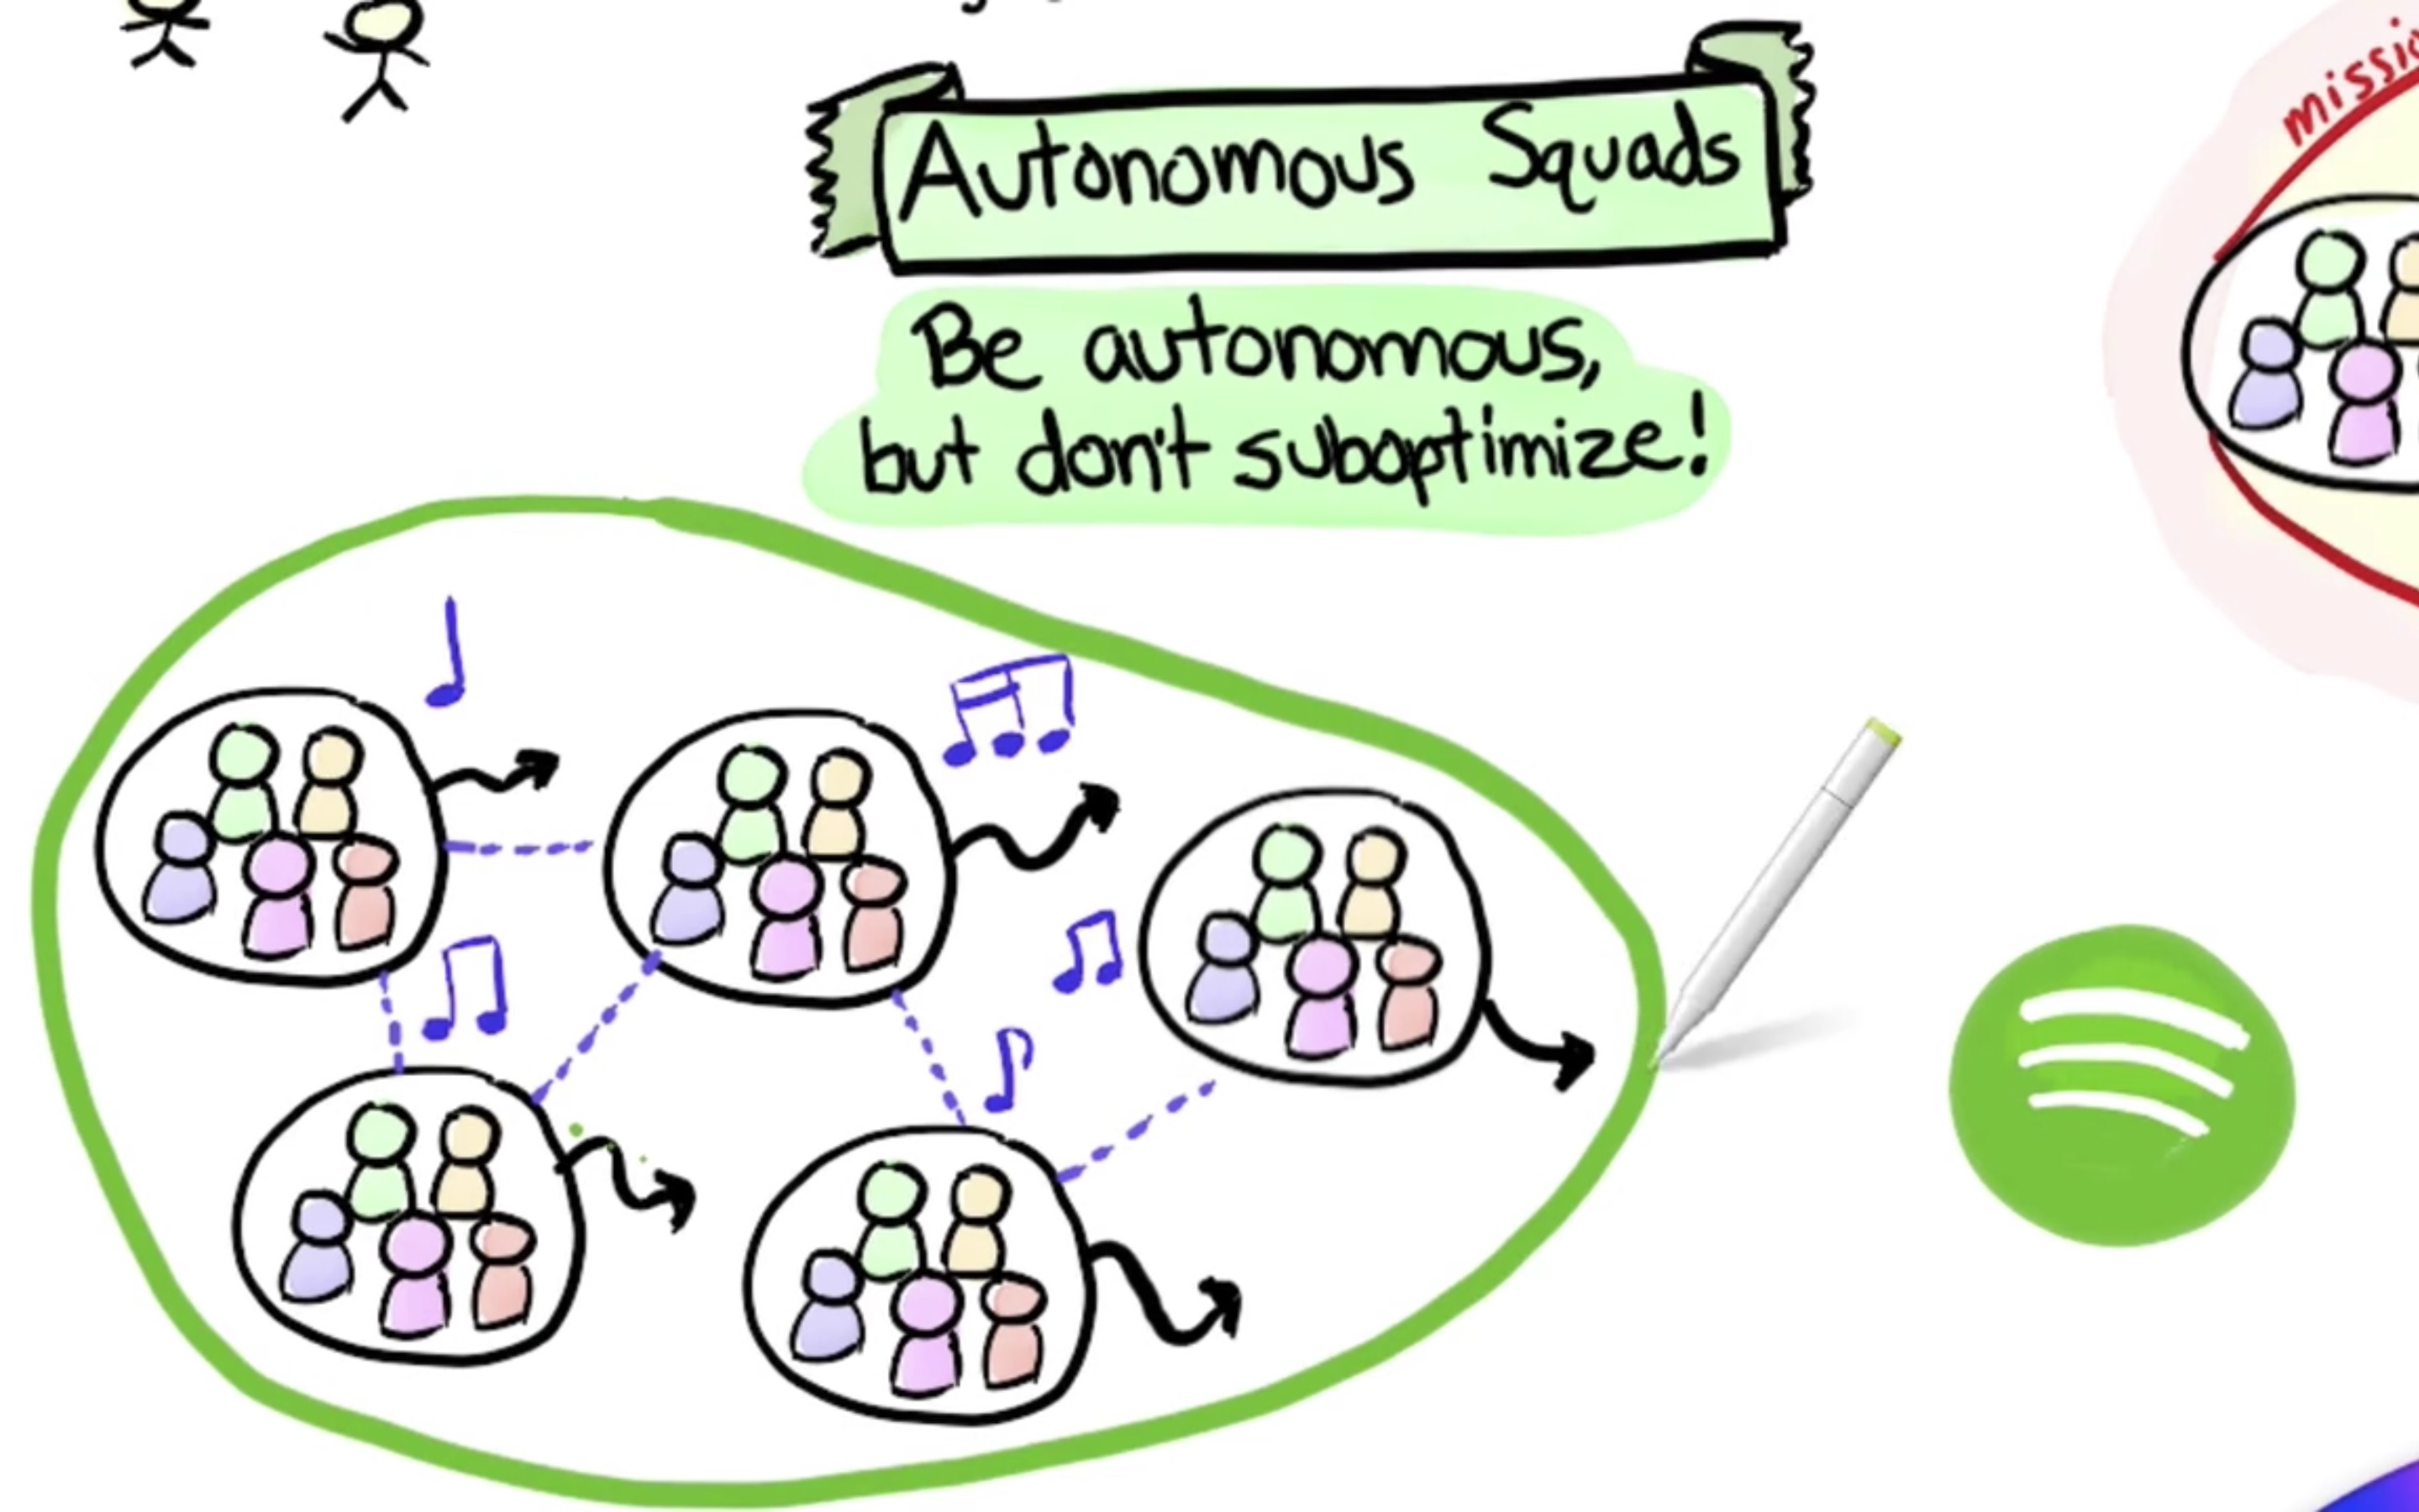 Autonomous Squads
Be autonomous,
but don't suboptimize!